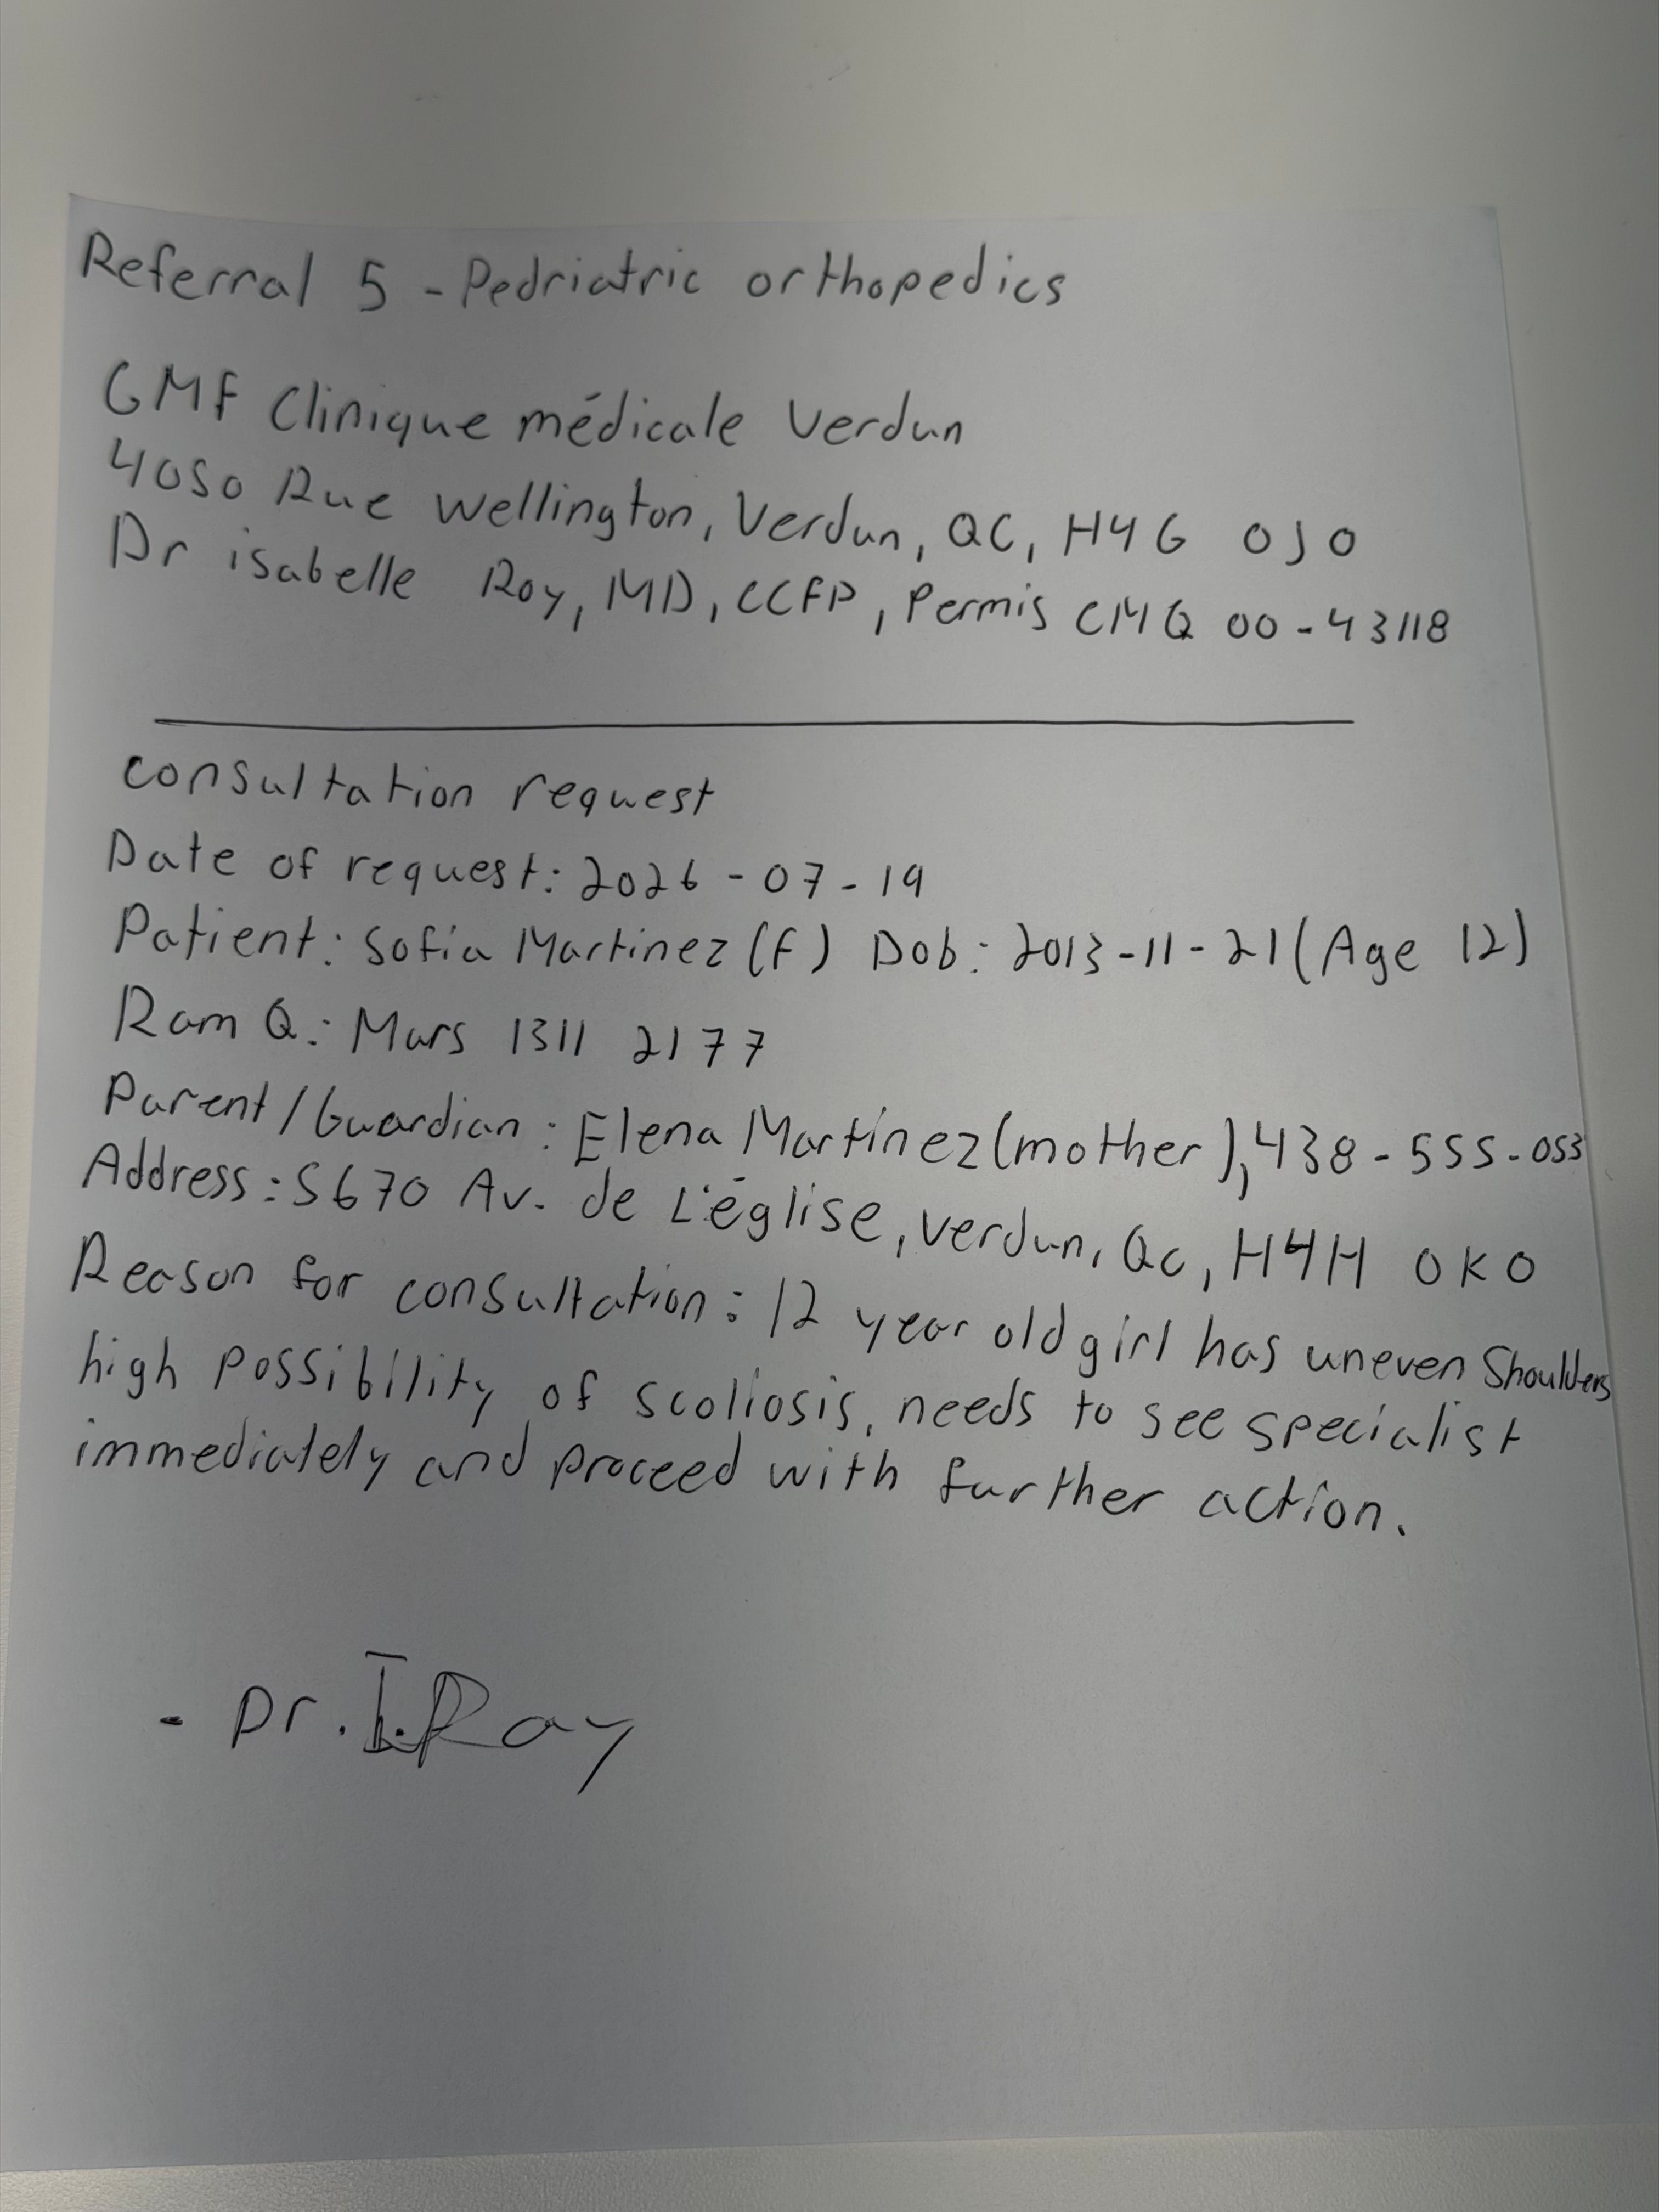 Referral 5 - Pedriatric orthopedics
GMF Clinique médicale Verdun
4050 Rue Wellington, Verdun, QC, H4G 0J0
Dr isabelle Roy, MD, CCFP, Permis CMQ 00-43118
consultation request
Date of request: 2026-07-19
Patient: Sofia Martinez (F) Dob: 2013-11-21 (Age 12)
Ram Q: Mars 1311 2177
Parent/Guardian: Elena Martinez (mother), 438-555-053
Address: 5670 Av. de L'église, Verdun, Qc, H4H 0K0
Reason for consultation: 12 year old girl has uneven Shoulders
high possibility of scoliosis, needs to see specialist
immediately and proceed with further action.
- Dr. I.Roy